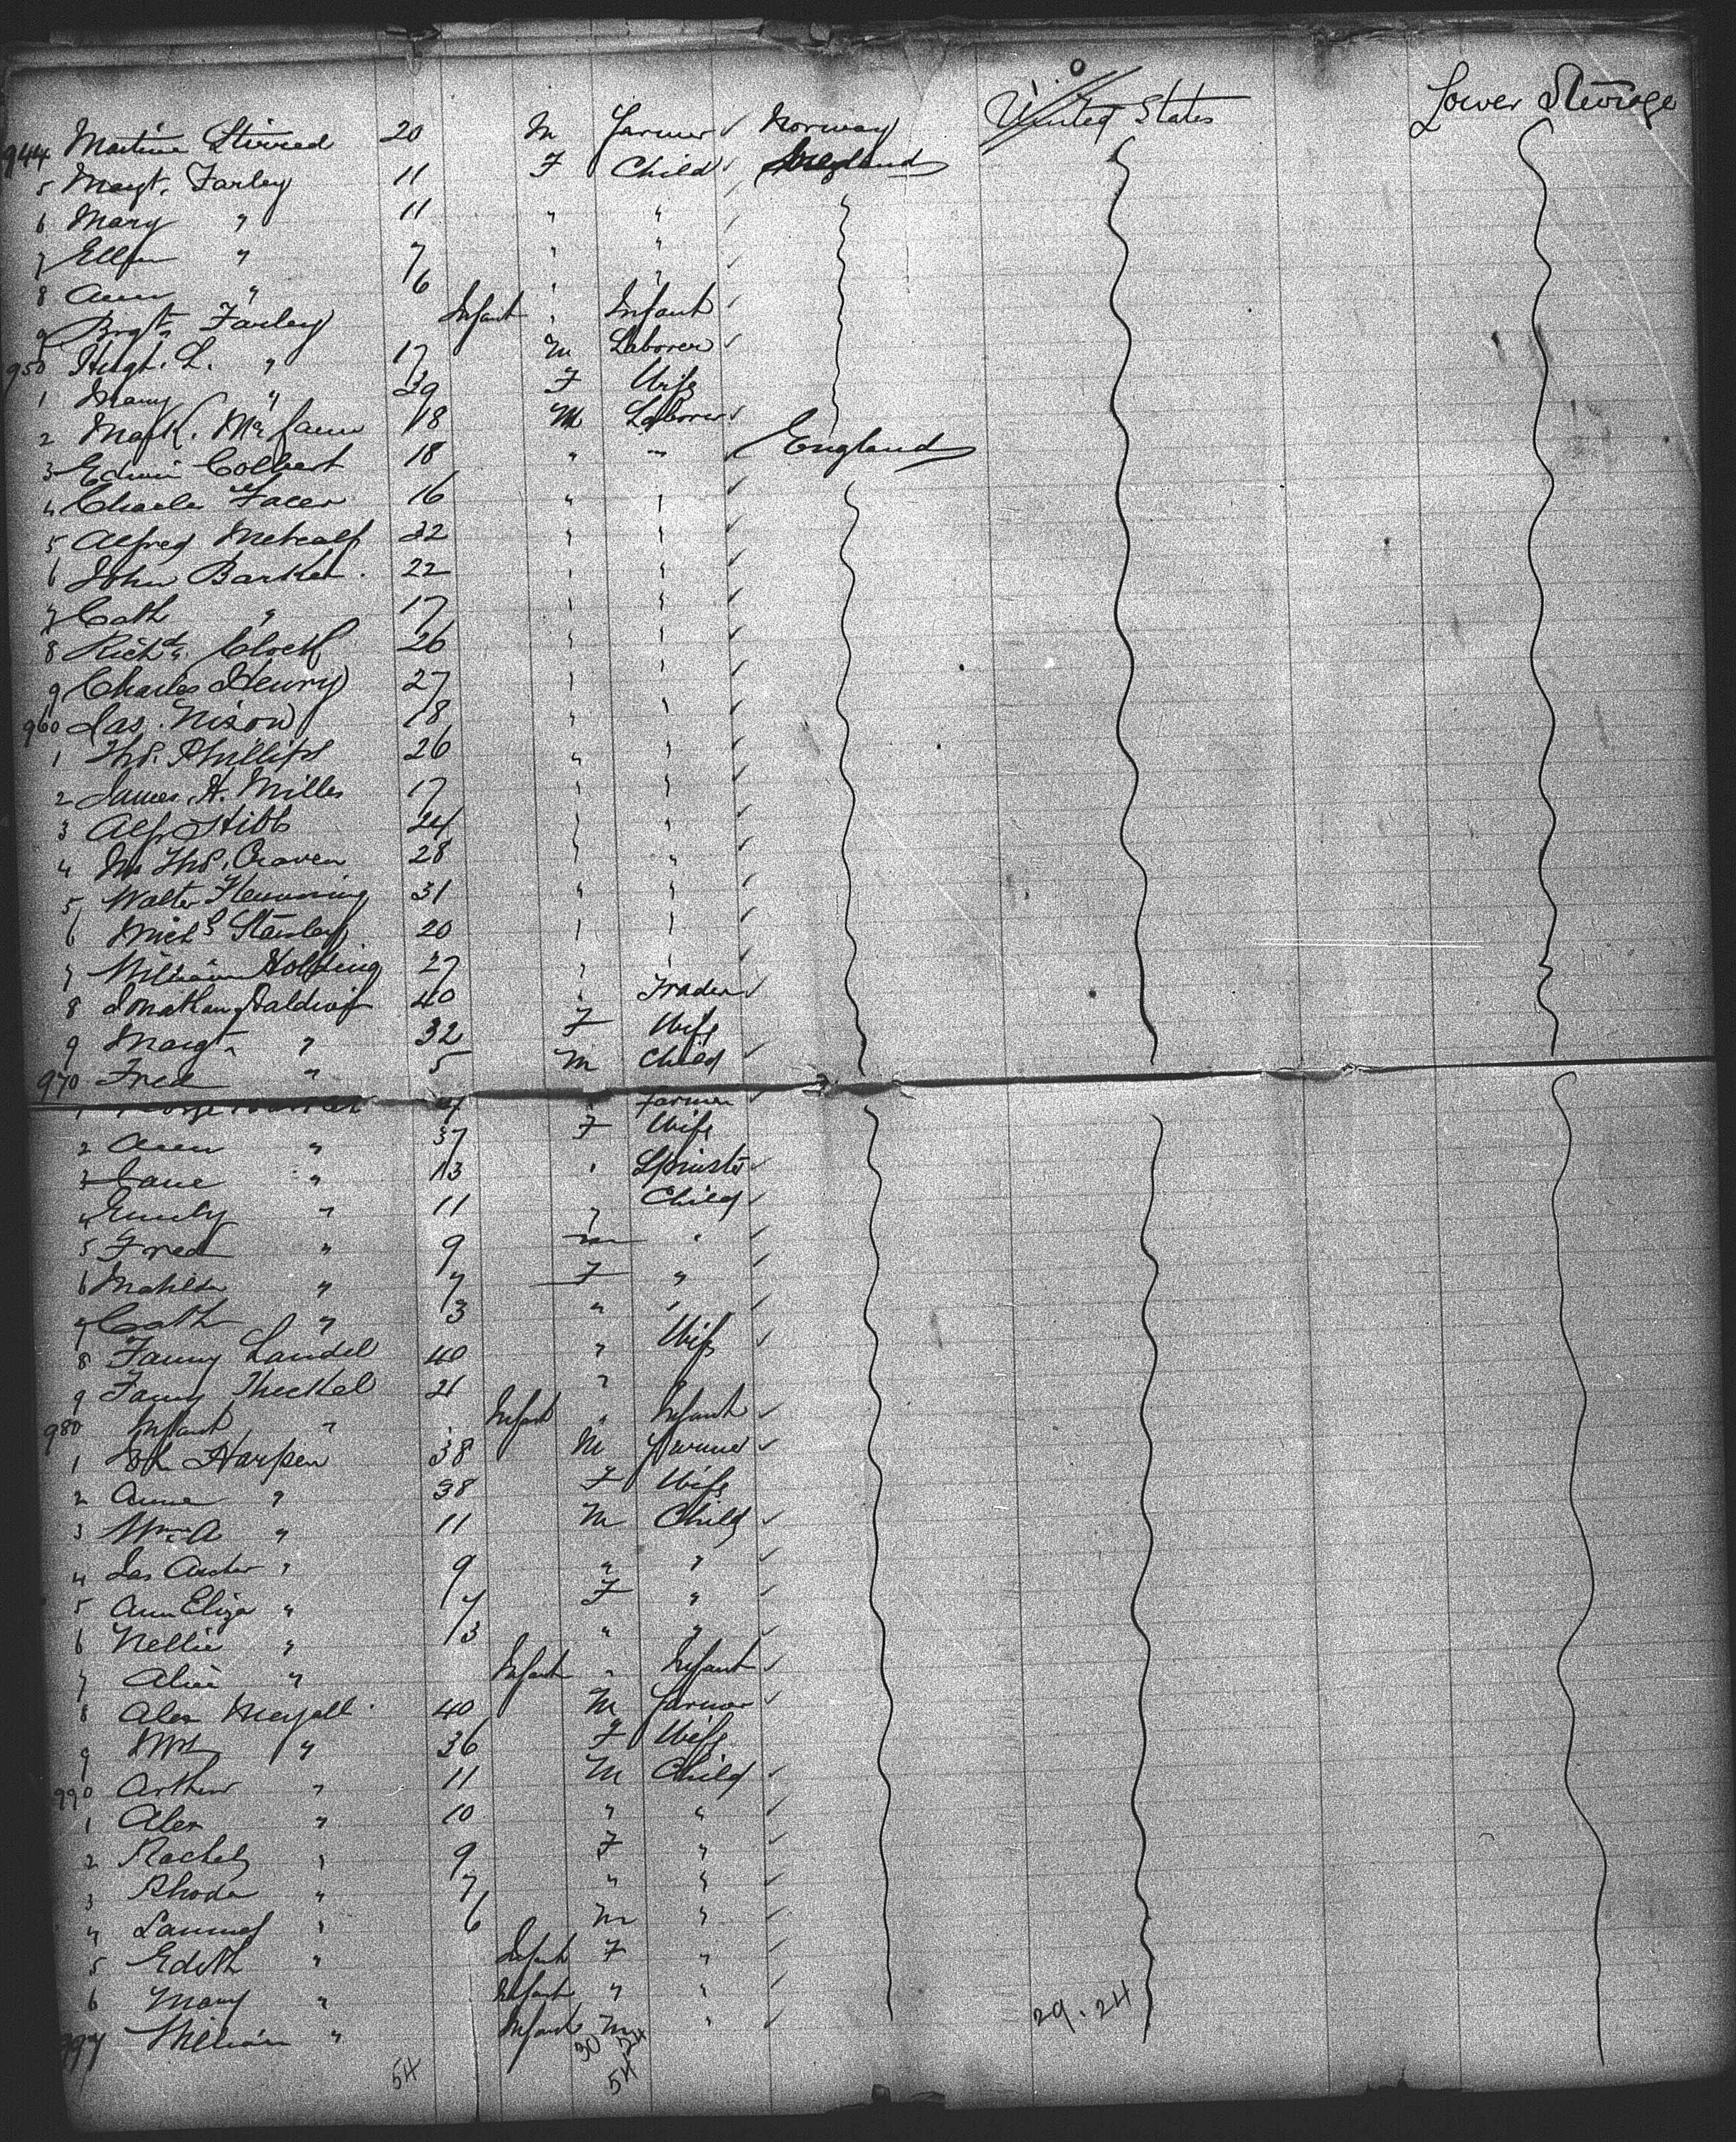 United States Lower Steerage
944 Martin 20 M Farmer Norway
5 Margt. Farley 11 F Child
6 Mary " 11 " "
7 Ellen " 7 " "
8 Ann " 6 " "
9 Brigt. Farley Infant " Infant
950 Hugh. L. " 17 M Laborer
1 Mary " 39 F Wife
2 18 M Laborer
3 Edwin Colbert 18 " " England
4 Charles Facer 16 " "
5 Alfred Metcalf 22 " "
6 John Barker. 22 " "
7 Cath " 17 " "
8 Richd. Clock 26 " "
9 Charles Henry 27 " "
960 Jas. Nixon 18 " "
1 Ths. Phillips 26 " "
2 James. H. Mills 17 " "
3 Alf. Hibb 24 " "
4 Ths. Craven 28 " "
5 Walter Flemming 31 " "
6 Michl Stanley 20 " "
7 William Holding 27 " "
8 Jonathan Baldwin 40 " Trader
9 Margt. " 32 F Wife
970 Fred " 5 M Child
1 George " Farmer
2 Ann " 37 F Wife
3 Jane " 13 " Spinster
4 Emily " 11 " Child
5 Fred " 9 M "
6 Matilda " 7 F "
7 Cath " 3 " "
8 Fanny Landel 40 " Wife
9 Fanny 21 " "
980 Infant " Infant " Infant
1 Harpen 38 M Farmer
2 Anne " 38 F Wife
3 Wm. A " 11 M Child
4 Jas " 9 " "
5 Ann Eliza " 7 F "
6 Nellie " 3 " "
7 Alice " Infant " Infant
8 Alex 40 M Farmer
9 Mrs " 36 F Wife
990 Arthur " 11 M Child
1 Alex " 10 " "
2 Rachel " 9 F "
3 Rhoda " 7 " "
4 Samuel " 6 M "
5 Edith " Infant F "
6 Mary " Infant " "
997 William " Infant M "
29.24
30 24
54 54